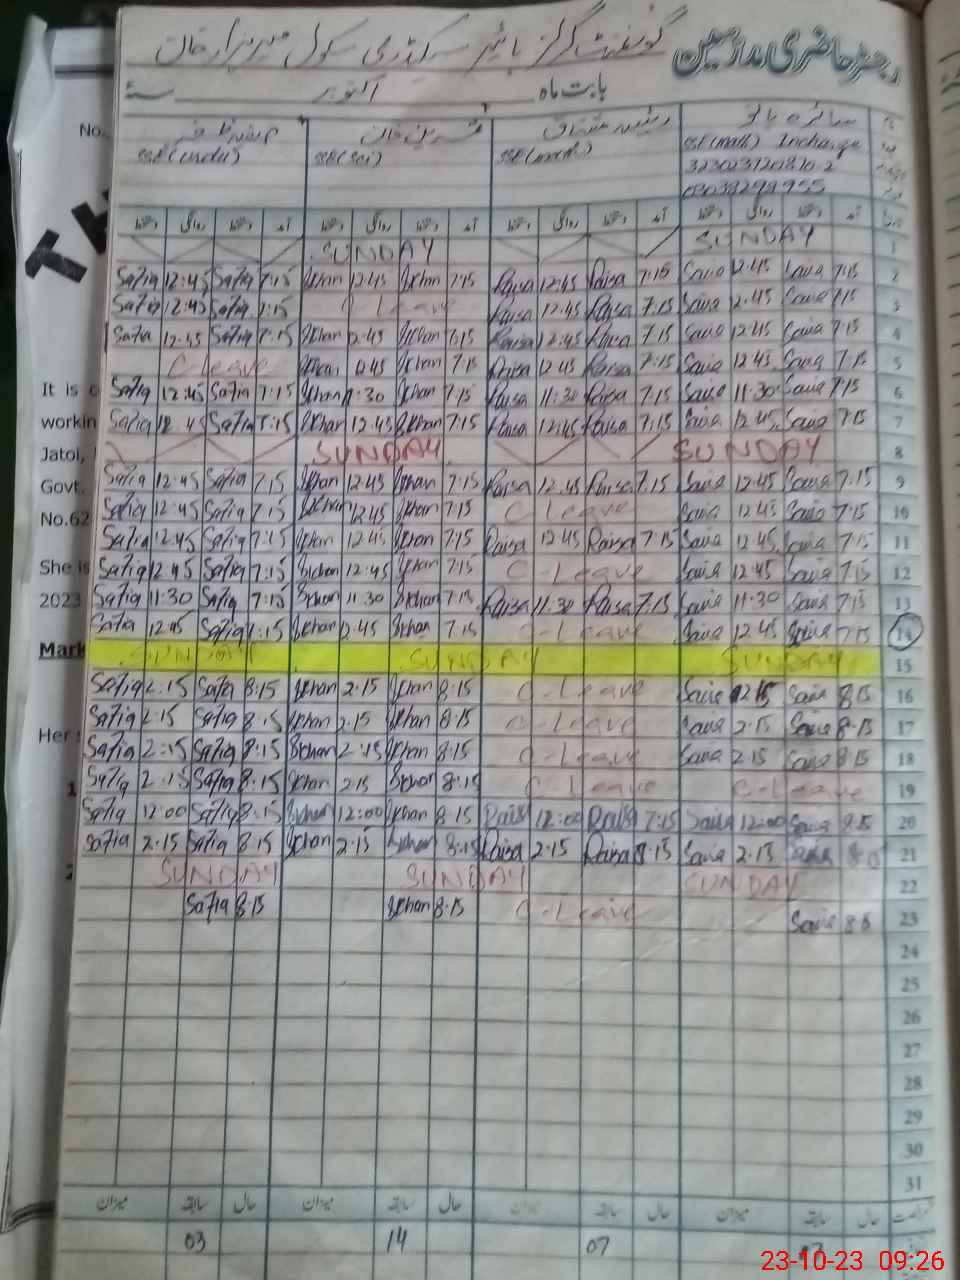 رجسٹر حاضری مدرسین گورنمنٹ گرلز ہائیر سیکنڈری سکول میر ہزار خان
بابت ماہ اکتوبر سنہ
سائرہ بانو رئیسہ مشتاق
SSE(math) Incharge SSE(math) SSE(Sci) SSE(Urdu)
32302372087o-2
03038298955
آمد دستخط روانگی دستخط آمد دستخط روانگی دستخط آمد دستخط روانگی دستخط آمد دستخط روانگی دستخط
SUNDAY SUNDAY 1
Safia 12:45 Safia 7:15 Skhan 12:45 Skhan 7:15 Raisa 12:45 Raisa 7:15 Saira 12:45 Saira 7:15 2
Safia 12:45 Safia 7:15 C-Leave Raisa 12:45 Raisa 7:15 Saira 12:45 Saira 7:15 3
Safia 12:45 Safia 7:15 Skhan 12:45 Skhan 7:15 Raisa 12:45 Raisa 7:15 Saira 12:45 Saira 7:15 4
C-Leave Skhan 12:45 Skhan 7:15 Raisa 12:45 Raisa 7:15 Saira 12:45 Saira 7:15 5
Safia 12:45 Safia 7:15 Skhan 11:30 Skhan 7:15 Raisa 11:30 Raisa 7:15 Saira 11:30 Saira 7:15 6
Safia 12:45 Safia 7:15 Skhan 12:45 Skhan 7:15 Raisa 12:45 Raisa 7:15 Saira 12:45 Saira 7:15 7
SUNDAY SUNDAY 8
Safia 12:45 Safia 7:15 Skhan 12:45 Skhan 7:15 Raisa 12:45 Raisa 7:15 Saira 12:45 Saira 7:15 9
Safia 12:45 Safia 7:15 Skhan 12:45 Skhan 7:15 C-Leave Saira 12:45 Saira 7:15 10
Safia 12:45 Safia 7:15 Skhan 12:45 Skhan 7:15 Raisa 12:45 Raisa 7:15 Saira 12:45 Saira 7:15 11
Safia 12:45 Safia 7:15 Skhan 12:45 Skhan 7:15 C-Leave Saira 12:45 Saira 7:15 12
Safia 11:30 Safia 7:15 Skhan 11:30 Skhan 7:15 Raisa 11:30 Raisa 7:15 Saira 11:30 Saira 7:15 13
Safia 12:45 Safia 7:15 Skhan 12:45 Skhan 7:15 C-Leave Saira 12:45 Saira 7:15 14
SUNDAY SUNDAY SUNDAY 15
Safia 2:15 Safia 8:15 Skhan 2:15 Skhan 8:15 C-Leave Saira 8:15 16
Safia 2:15 Safia 8:15 Skhan 2:15 Skhan 8:15 C-Leave Saira 2:15 Saira 8:15 17
Safia 2:15 Safia 8:15 Skhan 2:15 Skhan 8:15 C-Leave Saira 2:15 Saira 8:15 18
Safia 2:15 Safia 8:15 Skhan 2:15 Skhan 8:15 C-Leave C-Leave 19
Safia 12:00 Safia 8:15 Skhan 12:00 Skhan 8:15 Raisa 12:00 Raisa 7:15 Saira 12:00 Saira 8:15 20
Safia 2:15 Safia 8:15 Skhan 2:15 Skhan 8:15 Raisa 2:15 Raisa 8:15 Saira 2:15 Saira 8:15 21
SUNDAY SUNDAY SUNDAY 22
Safia 8:15 Skhan 8:15 C-Leave Saira 8:15 23
24
25
26
27
28
29
30
31
حال سابقہ میزان حال سابقہ میزان حال سابقہ میزان حال سابقہ میزان
03 14 07
No.
It is
workin
Jatoi,
Govt.
No.62
She is
2023
Mark
Her
23-10-23 09:26